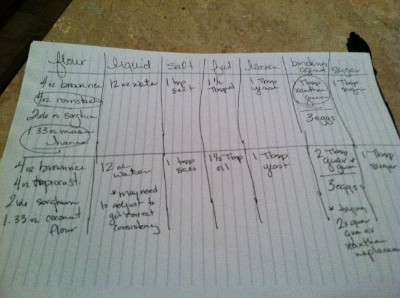 flour liquid salt fat leaven binding agent sugar
4 oz brown rice 12 oz water 1 tsp salt 1 1/2 Tbsp oil 1 Tbsp yeast 1 Tbsp xanthan gum 1 Tbsp sugar
4 oz cornstarch
2 oz sorghum 3 eggs
1.33 oz
4 oz brown rice 12 oz water 1 tsp salt 1 1/2 Tbsp oil 1 Tbsp yeast 2 Tbsp guar gum 1 Tbsp sugar
4 oz
2 oz sorghum 3 eggs
1.33 oz coconut flour
* may need to adjust to get correct consistency
* trying 2x guar gum as xanthan replacement